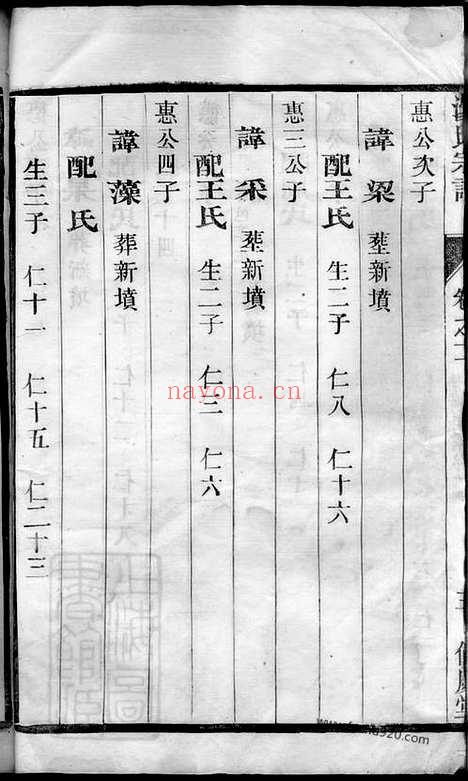 惠公次子
諱梁 塟新墳
配王氏 生二子 仁八 仁十六
惠公三子
諱采 塟新墳
配王氏 生二子 仁三 仁六
惠公四子
諱藻 葬新墳
配氏
生三子 仁十一 仁十五 仁二十三
nayona.cn